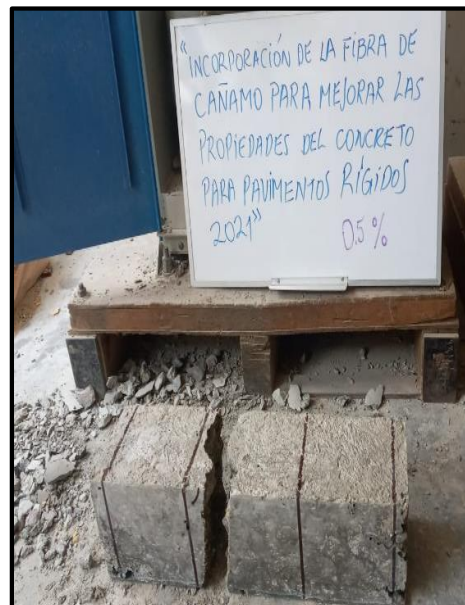 "INCORPORACIÓN DE LA FIBRA DE
CAÑAMO PARA MEJORAR LAS
PROPIEDADES DEL CONCRETO
PARA PAVIMENTOS RÍGIDOS
2021"
0.5 %